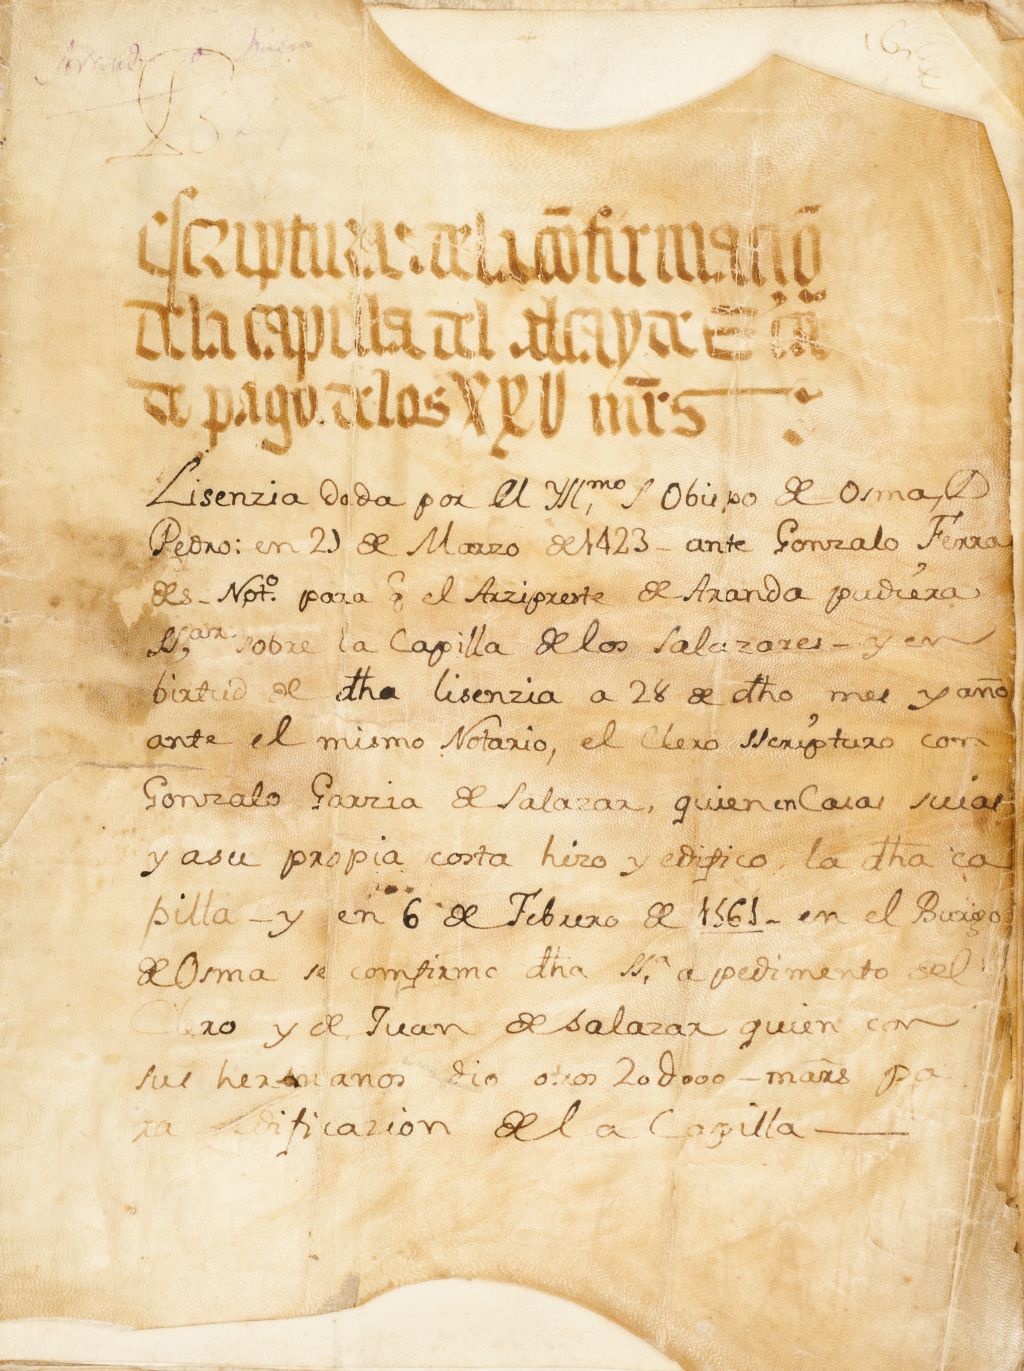 escripturas de la cõfirmaciõ
de la capilla del alcayde E cã
de pago. de los XXV mrs
Lisenzia dada por el Yll,mo S Obispo de Osma, D
Pedro: en 21 de Marzo de 1423 - ante Gonzalo Ferra
des - Noto. para q el Arzipreste de Aranda pudiera
SS,ar sobre la Capilla de los Salazares - y en
birtud de dha lisenzia a 28 de dho mes y año
ante el mismo Notario, el Clero SScripturo con
Gonzalo Garzia de Salazar, quien en Casas suias
y a su propia costa hizo y edifico la dha ca
pilla - y en 6 de Febrero de 1561 - en el Burgo
de Osma se comfirmo dha SS,a a pedimento del
Clero y de Juan de Salazar quien con
sus hermanos dio otros 20d000 - mars pa
ra edificazion de la Capilla